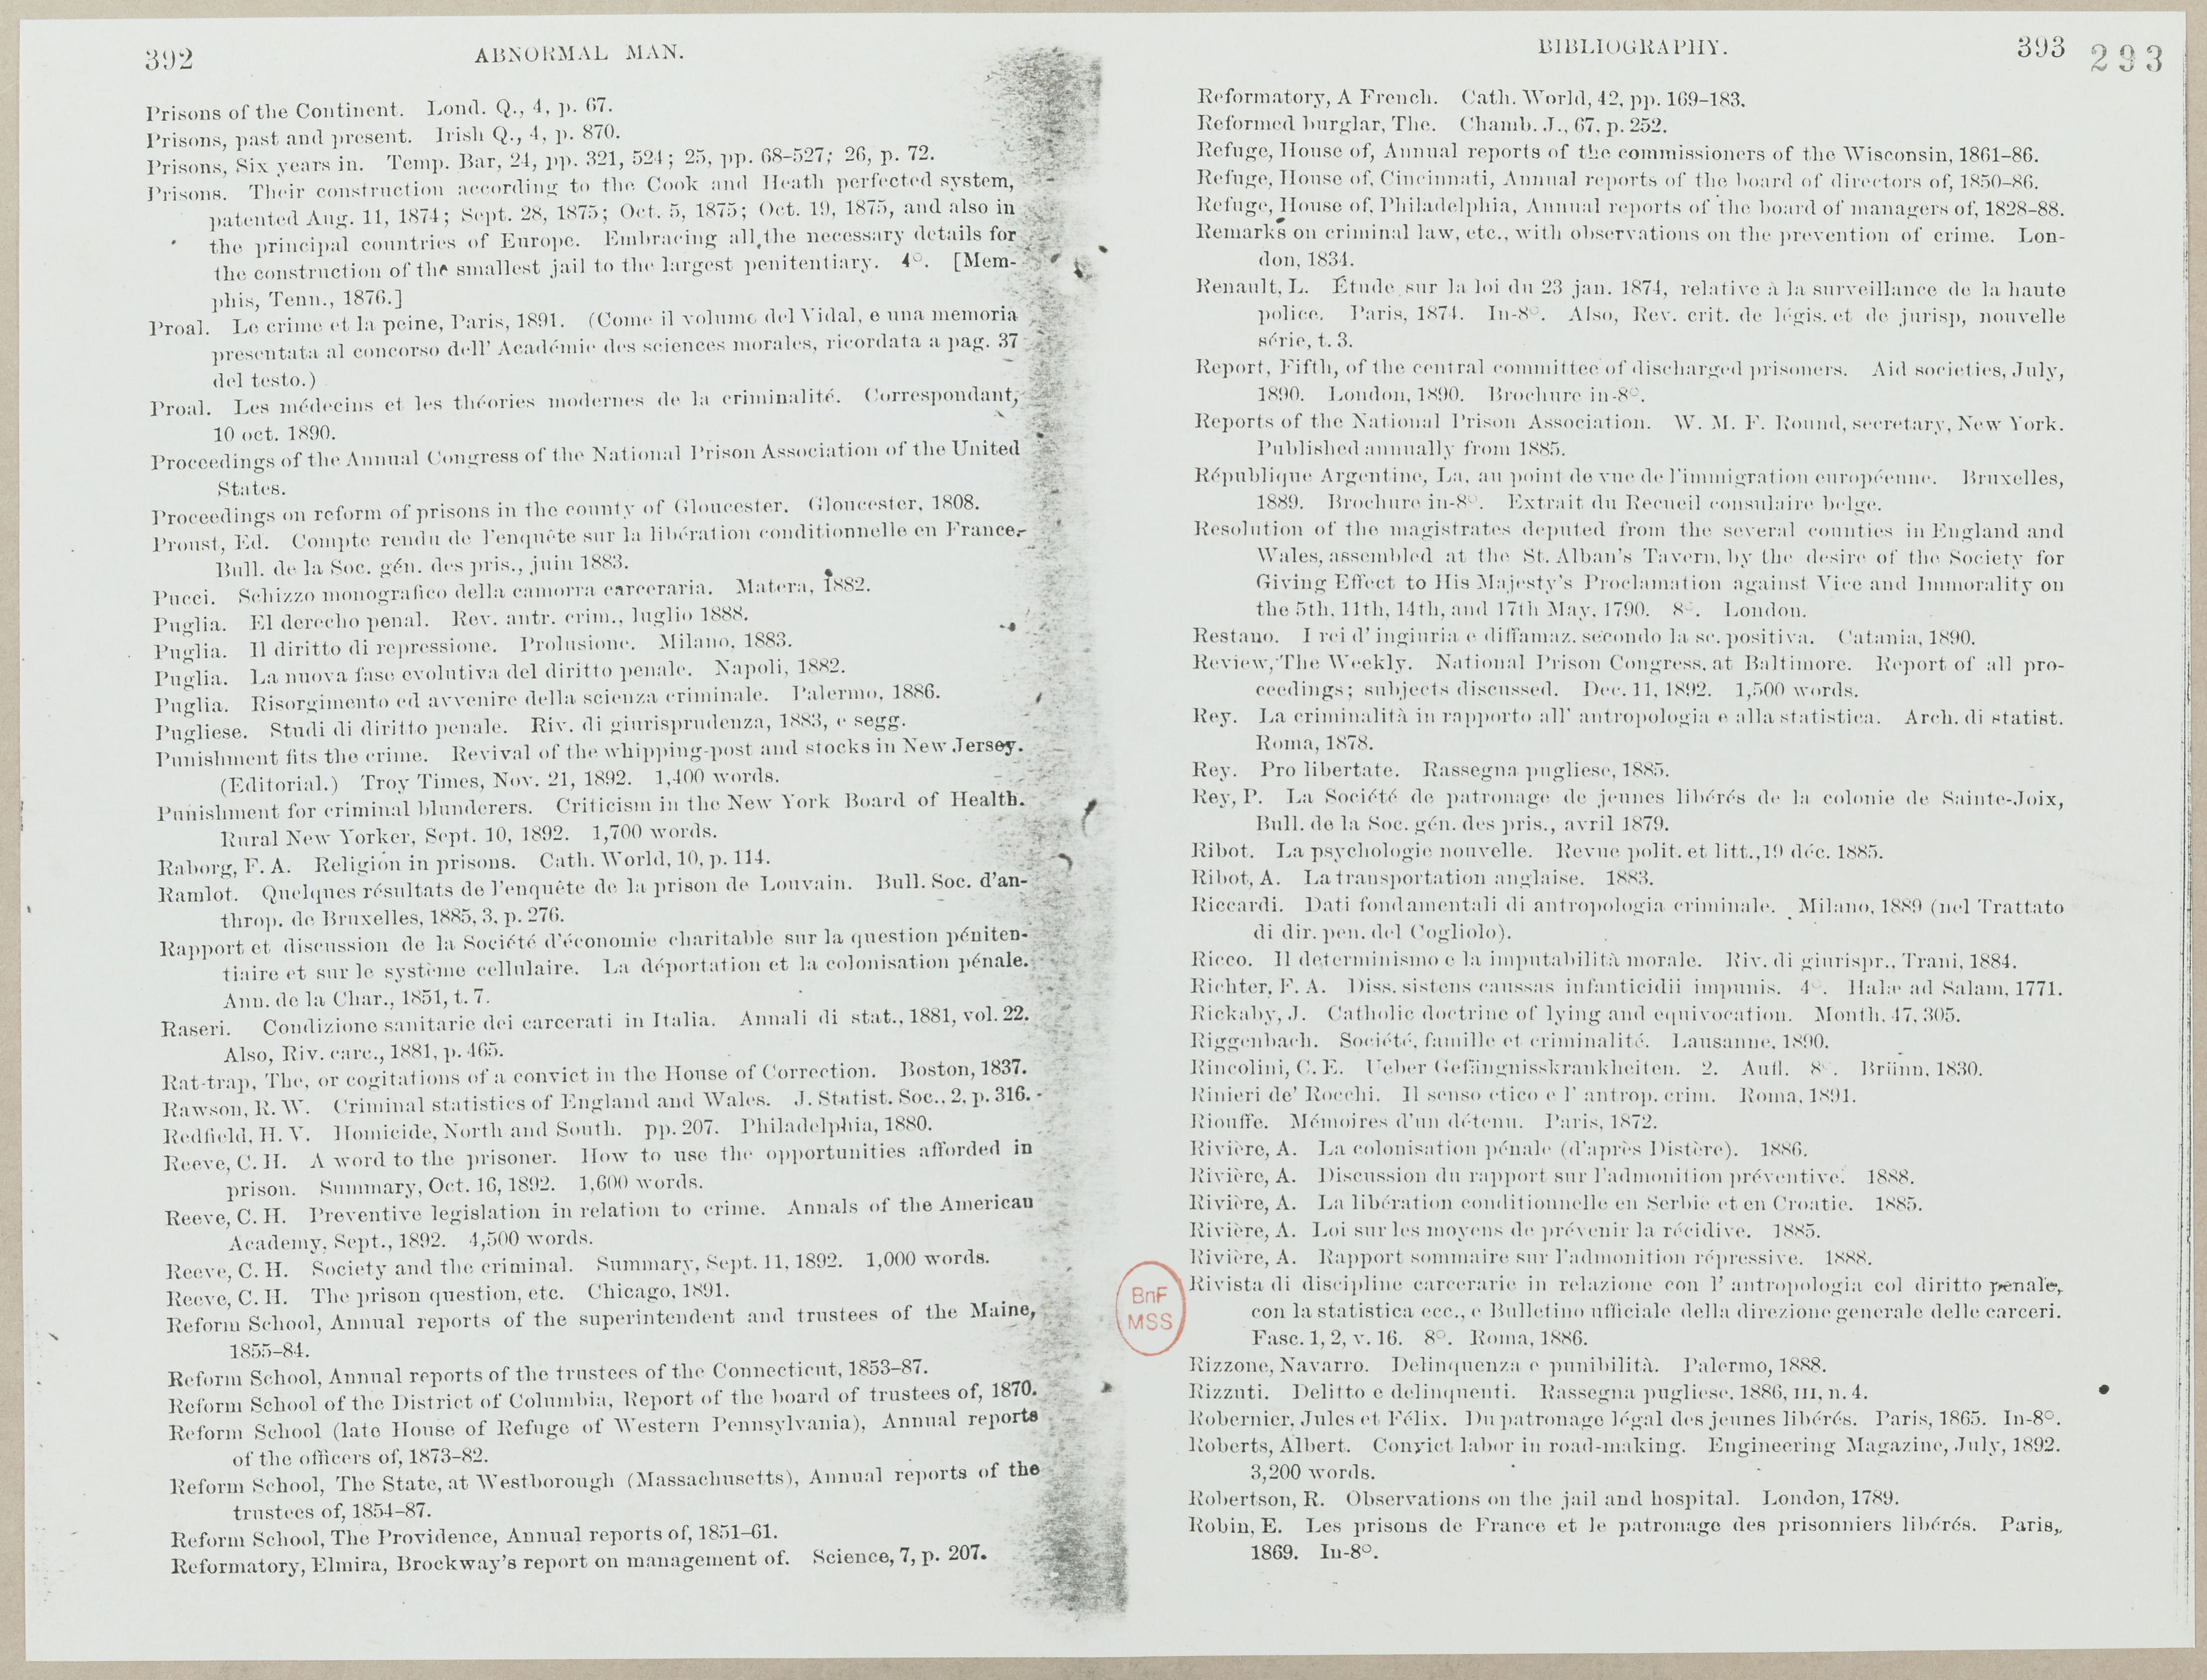 392 ABNORMAL MAN.
Prisons of the Continent. Lond. Q., 4, p. 67.
Prisons, past and present. Irish Q., 4, p. 870.
Prisons, Six years in. Temp. Bar, 24, pp. 321, 524; 25, pp. 68-527; 26, p. 72.
Prisons. Their construction according to the Cook and Heath perfected system,
patented Aug. 11, 1874; Sept. 28, 1875; Oct. 5, 1875; Oct. 19, 1875, and also in
the principal countries of Europe. Embracing all the necessary details for
the construction of the smallest jail to the largest penitentiary. 4°. [Mem-
phis, Tenn., 1876.]
Proal. Le crime et la peine, Paris, 1891. (Come il volume del Vidal, e una memoria
presentata al concorso dell' Académie des sciences morales, ricordata a pag. 37
del testo.)
Proal. Les médecins et les théories modernes de la criminalité. Correspondant,
10 oct. 1890.
Proceedings of the Annual Congress of the National Prison Association of the United
States.
Proceedings on reform of prisons in the county of Gloucester. Gloucester, 1808.
Proust, Ed. Compte rendu de l'enquête sur la libération conditionnelle en France.
Bull. de la Soc. gén. des pris., juin 1883.
Pucci. Schizzo monografico della camorra carceraria. Matera, 1882.
Puglia. El derecho penal. Rev. antr. crim., luglio 1888.
Puglia. Il diritto di repressione. Prolusione. Milano, 1883.
Puglia. La nuova fase evolutiva del diritto penale. Napoli, 1882.
Puglia. Risorgimento ed avvenire della scienza criminale. Palermo, 1886.
Pugliese. Studi di diritto penale. Riv. di giurisprudenza, 1883, e segg.
Punishment fits the crime. Revival of the whipping-post and stocks in New Jersey.
(Editorial.) Troy Times, Nov. 21, 1892. 1,400 words.
Punishment for criminal blunderers. Criticism in the New York Board of Health.
Rural New Yorker, Sept. 10, 1892. 1,700 words.
Raborg, F. A. Religion in prisons. Cath. World, 10, p. 114.
Ramlot. Quelques résultats de l'enquête de la prison de Louvain. Bull. Soc. d'an-
throp. de Bruxelles, 1885, 3, p. 276.
Rapport et discussion de la Société d'économie charitable sur la question péniten-
tiaire et sur le système cellulaire. La déportation et la colonisation pénale.
Ann. de la Char., 1851, t. 7.
Raseri. Condizione sanitarie dei carcerati in Italia. Annali di stat., 1881, vol. 22.
Also, Riv. carc., 1881, p. 465.
Rat-trap, The, or cogitations of a convict in the House of Correction. Boston, 1837.
Rawson, R. W. Criminal statistics of England and Wales. J. Statist. Soc., 2, p. 316.
Redfield, H. V. Homicide, North and South. pp. 207. Philadelphia, 1880.
Reeve, C. H. A word to the prisoner. How to use the opportunities afforded in
prison. Summary, Oct. 16, 1892. 1,600 words.
Reeve, C. H. Preventive legislation in relation to crime. Annals of the American
Academy, Sept., 1892. 4,500 words.
Reeve, C. H. Society and the criminal. Summary, Sept. 11, 1892. 1,000 words.
Reeve, C. H. The prison question, etc. Chicago, 1891.
Reform School, Annual reports of the superintendent and trustees of the Maine,
1855-84.
Reform School, Annual reports of the trustees of the Connecticut, 1853-87.
Reform School of the District of Columbia, Report of the board of trustees of, 1870.
Reform School (late House of Refuge of Western Pennsylvania), Annual reports
of the officers of, 1873-82.
Reform School, The State, at Westborough (Massachusetts), Annual reports of the
trustees of, 1854-87.
Reform School, The Providence, Annual reports of, 1851-61.
Reformatory, Elmira, Brockway's report on management of. Science, 7, p. 207.
BIBLIOGRAPHY. 393 293
Reformatory, A French. Cath. World, 42, pp. 169-183.
Reformed burglar, The. Chamb. J., 67, p. 252.
Refuge, House of, Annual reports of the commissioners of the Wisconsin, 1861-86.
Refuge, House of, Cincinnati, Annual reports of the board of directors of, 1850-86.
Refuge, House of, Philadelphia, Annual reports of the board of managers of, 1828-88.
Remarks on criminal law, etc., with observations on the prevention of crime. Lon-
don, 1834.
Renault, L. Étude sur la loi du 23 jan. 1874, relative à la surveillance de la haute
police. Paris, 1874. In-8°. Also, Rev. crit. de légis. et de jurisp, nouvelle
série, t. 3.
Report, Fifth, of the central committee of discharged prisoners. Aid societies, July,
1890. London, 1890. Brochure in-8°.
Reports of the National Prison Association. W. M. F. Round, secretary, New York.
Published annually from 1885.
République Argentine, La, au point de vue de l'immigration européenne. Bruxelles,
1889. Brochure in-8°. Extrait du Recueil consulaire belge.
Resolution of the magistrates deputed from the several counties in England and
Wales, assembled at the St. Alban's Tavern, by the desire of the Society for
Giving Effect to His Majesty's Proclamation against Vice and Immorality on
the 5th, 11th, 14th, and 17th May, 1790. 8°. London.
Restano. I rei d' ingiuria e diffamaz. secondo la sc. positiva. Catania, 1890.
Review, The Weekly. National Prison Congress, at Baltimore. Report of all pro-
ceedings; subjects discussed. Dec. 11, 1892. 1,500 words.
Rey. La criminalità in rapporto all' antropologia e alla statistica. Arch. di statist.
Roma, 1878.
Rey. Pro libertate. Rassegna pugliese, 1885.
Rey, P. La Société de patronage de jeunes libérés de la colonie de Sainte-Joix,
Bull. de la Soc. gén. des pris., avril 1879.
Ribot. La psychologie nouvelle. Revue polit. et litt., 19 déc. 1885.
Ribot, A. La transportation anglaise. 1883.
Riccardi. Dati fondamentali di antropologia criminale. Milano, 1889 (nel Trattato
di dir. pen. del Cogliolo).
Ricco. Il determinismo e la imputabilità morale. Riv. di giurispr., Trani, 1884.
Richter, F. A. Diss. sistens caussas infanticidii impunis. 4°. Halæ ad Salam, 1771.
Rickaby, J. Catholic doctrine of lying and equivocation. Month, 47, 305.
Riggenbach. Société, famille et criminalité. Lausanne, 1890.
Rincolini, C. E. Ueber Gefängnisskrankheiten. 2. Aufl. 8°. Brünn, 1830.
Rinieri de' Rocchi. Il senso etico e l' antrop. crim. Roma, 1891.
Riouffe. Mémoires d'un détenu. Paris, 1872.
Rivière, A. La colonisation pénale (d'après Distère). 1886.
Rivière, A. Discussion du rapport sur l'admonition préventive. 1888.
Rivière, A. La libération conditionnelle en Serbie et en Croatie. 1885.
Rivière, A. Loi sur les moyens de prévenir la récidive. 1885.
Rivière, A. Rapport sommaire sur l'admonition répressive. 1888.
Rivista di discipline carcerarie in relazione con l' antropologia col diritto penale,
con la statistica ecc., e Bulletino ufficiale della direzione generale delle carceri.
Fasc. 1, 2, v. 16. 8°. Roma, 1886.
BnF
MSS
Rizzone, Navarro. Delinquenza e punibilità. Palermo, 1888.
Rizzuti. Delitto e delinquenti. Rassegna pugliese, 1886, III, n. 4.
Robernier, Jules et Félix. Du patronage légal des jeunes libérés. Paris, 1865. In-8°.
Roberts, Albert. Convict labor in road-making. Engineering Magazine, July, 1892.
3,200 words.
Robertson, R. Observations on the jail and hospital. London, 1789.
Robin, E. Les prisons de France et le patronage des prisonniers libérés. Paris,
1869. In-8°.